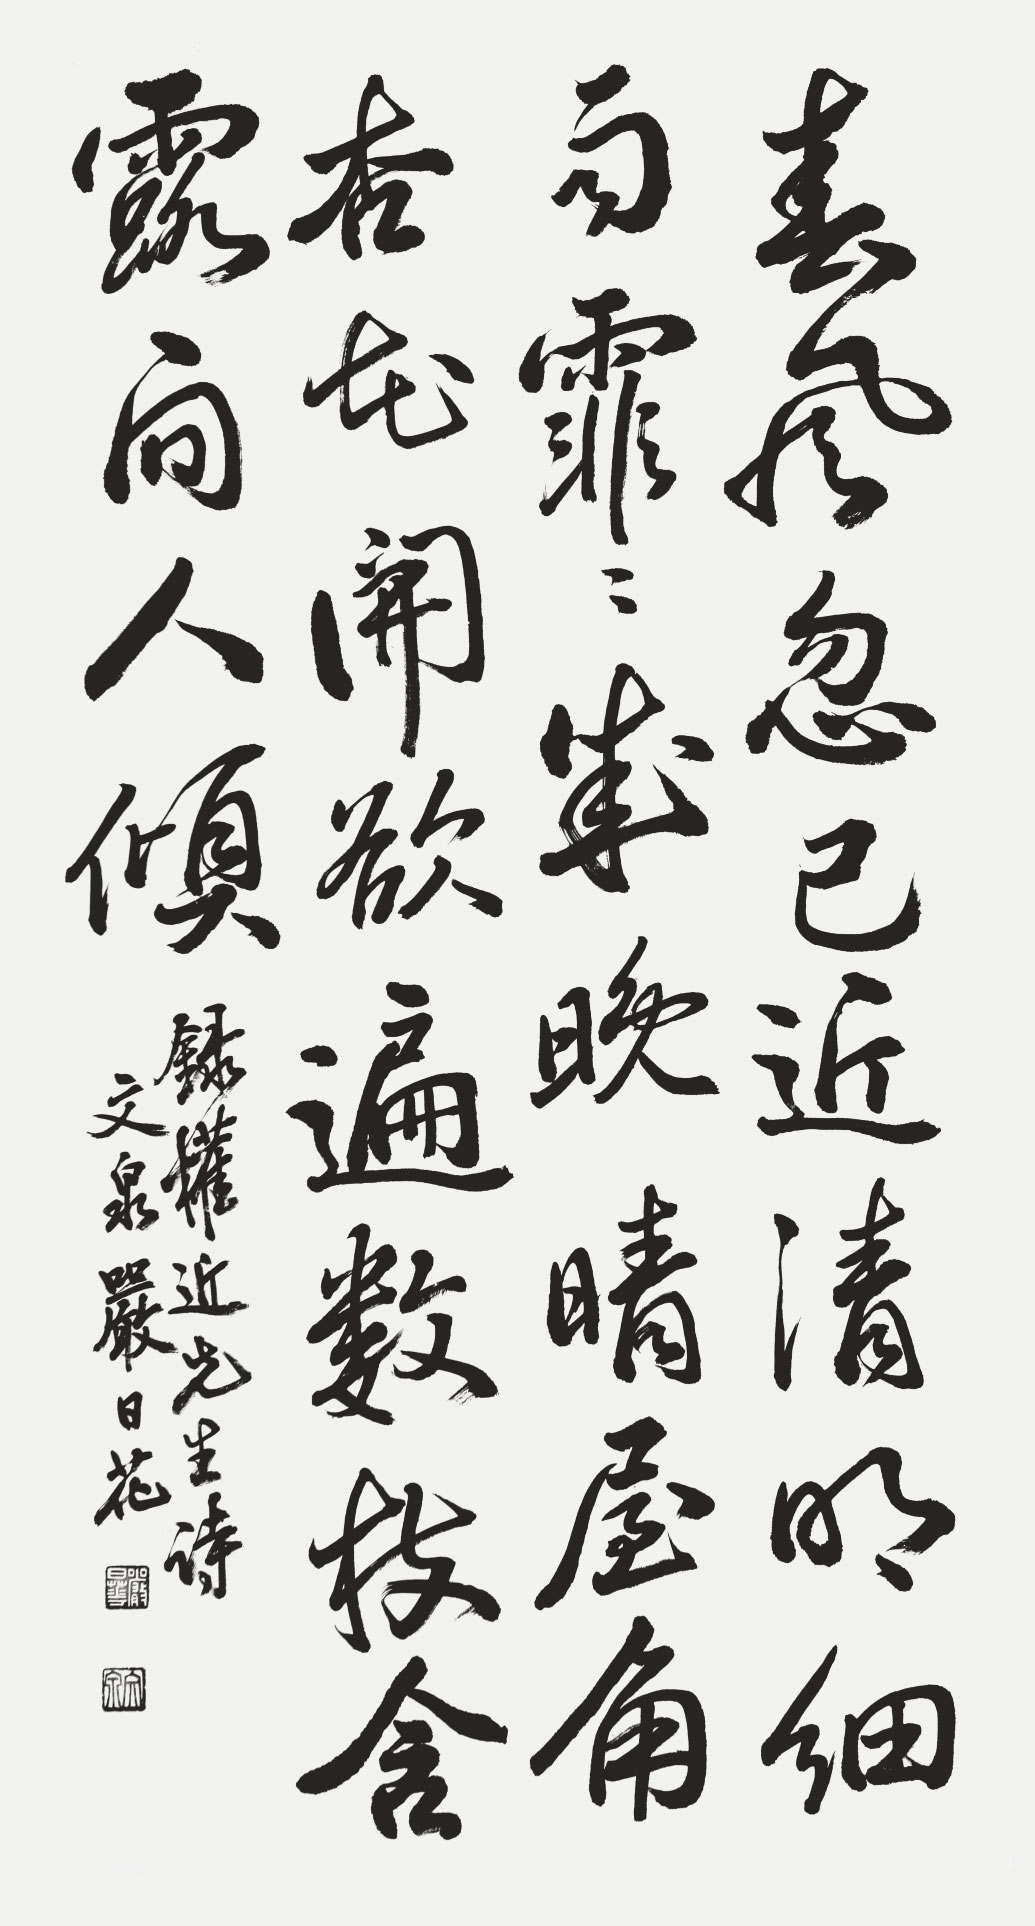 春風忽已近清明細
雨霏〻成晚晴屋角
杏花開欲遍數枝含
露向人傾
錄權近先生詩
文泉嚴日花